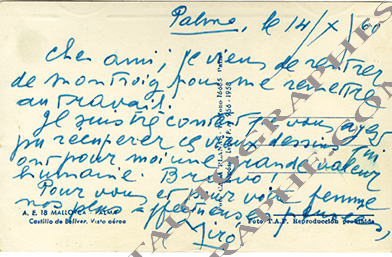 Palma, le 14/X/60
Cher ami, je viens de rentrer
de Montroig pour me remettre
au travail.
Je suis très content que vous ayez
pu récupérer ces dessins, qui
ont pour moi une grande valeur
humaine. Bravo!
Pour vous et pour votre femme
nos plus affectueuses pensées,
Miró.
A. E. 18 MALLORCA - PALMA
Castillo de Bellver. Vista aérea
Foto. T.A.F. Reproducción prohibida